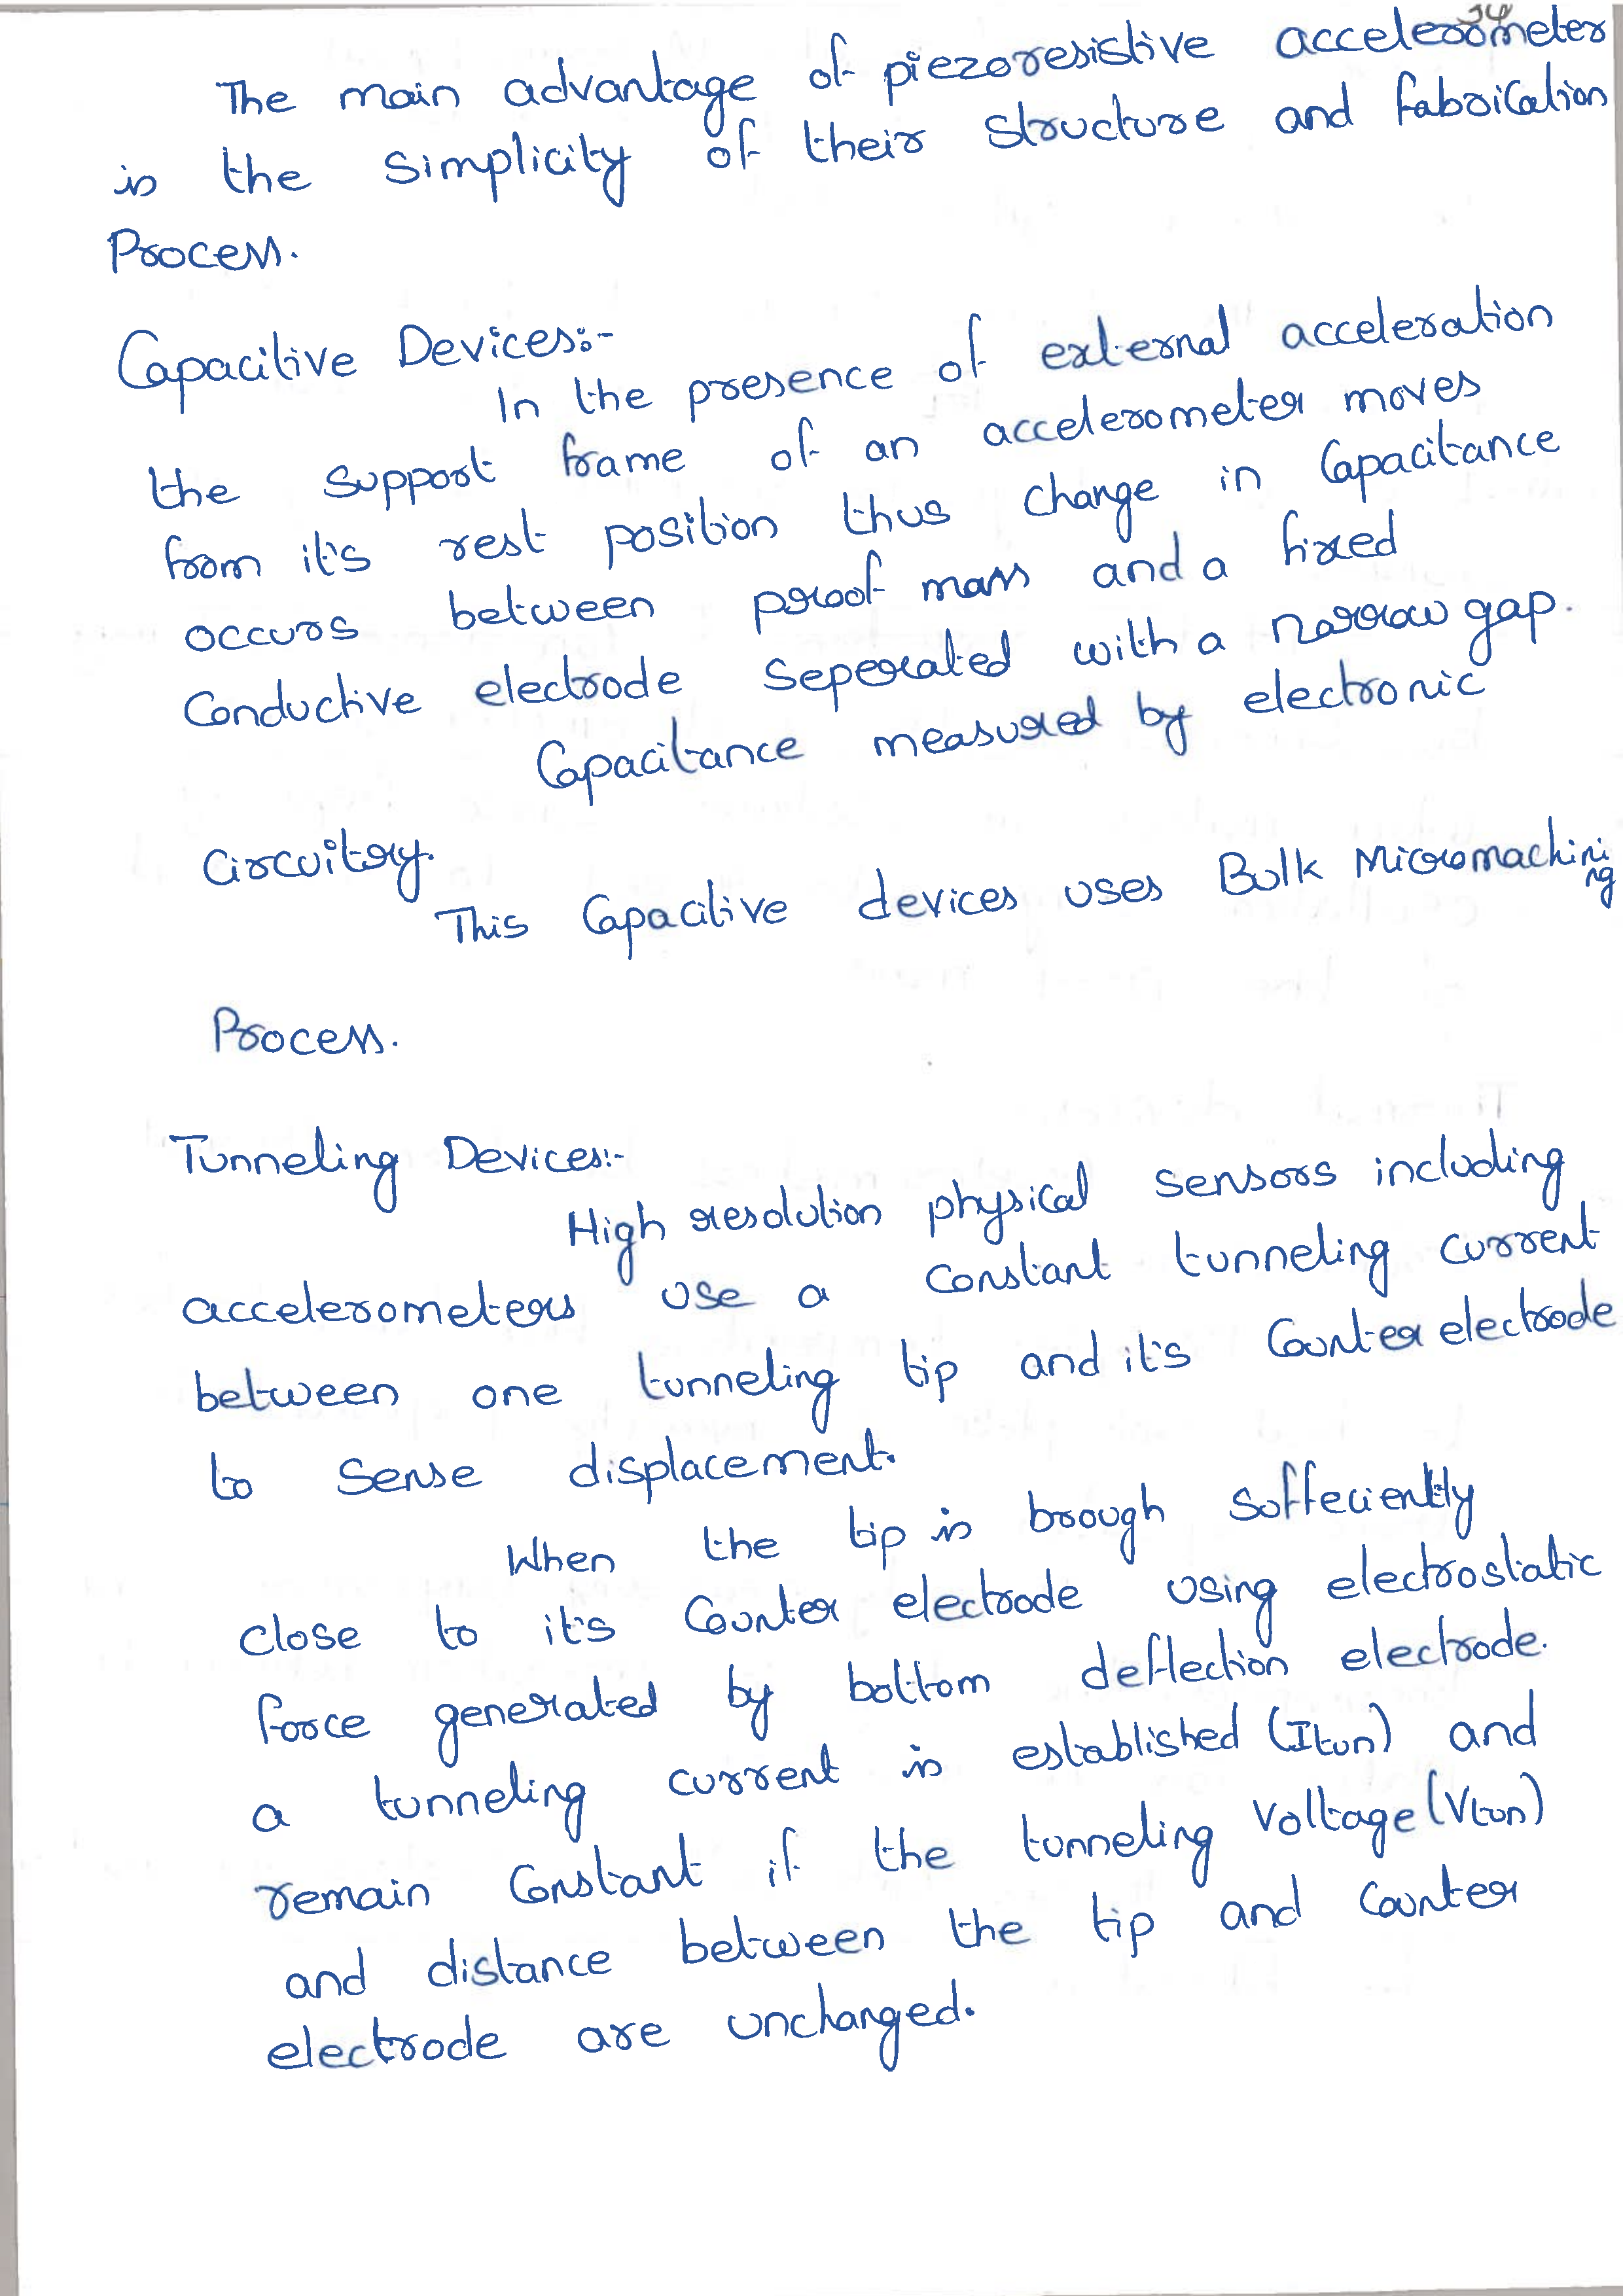 34
The main advantage of piezoresistive accelerometer
is the simplicity of their structure and fabrication
Process.
Capacitive Devices:-
In the presence of external acceleration
the support frame of an accelerometer moves
from it's rest position thus change in Capacitance
occurs between proof mass and a fixed
Conductive electrode Seperated with a narrow gap.
Capacitance measured by electronic
Circuitry.
This Capacitive devices uses Bulk Micromachini
ng
Process.
Tunneling Devices:-
High resolution physical sensors including
accelerometers use a constant tunneling current
between one tunneling tip and it's Counter electrode
to sense displacement.
When the tip is brough suffeciently
close to it's Counter electrode using electrostatic
force generated by bottom deflection electrode.
a tunneling current is established (Itun) and
remain Constant if the tunneling Voltage (Vtun)
and distance between the tip and Counter
electrode are unchanged.